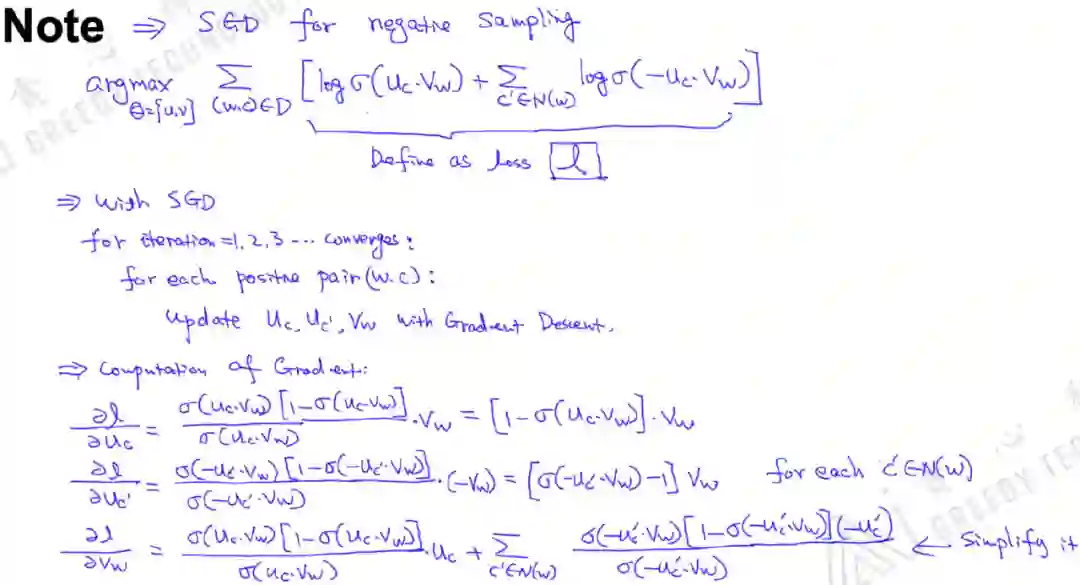 Note ⇒ SGD for negative sampling
argmax θ=[u,v] Σ (w,c)∈D [log σ(u_c·v_w) + Σ c'∈N(w) log σ(-u_c·v_w)]
Define as loss l
⇒ with SGD
for iteration=1,2,3 ... converges:
for each positive pair(w.c):
update u_c, u_c', v_w with Gradient Descent.
⇒ Computation of Gradient:
∂l/∂u_c = σ(u_c·v_w)[1-σ(u_c·v_w)]/σ(u_c·v_w) ·v_w = [1-σ(u_c·v_w)]·v_w
∂l/∂u_c' = σ(-u_c'·v_w)[1-σ(-u_c'·v_w)]/σ(-u_c'·v_w) ·(-v_w) = [σ(-u_c'·v_w)-1] v_w for each c'∈N(w)
∂l/∂v_w = σ(u_c·v_w)[1-σ(u_c·v_w)]/σ(u_c·v_w) ·u_c + Σ c'∈N(w) σ(-u_c'·v_w)[1-σ(-u_c'·v_w)](-u_c')/σ(-u_c'·v_w) ← Simplify it